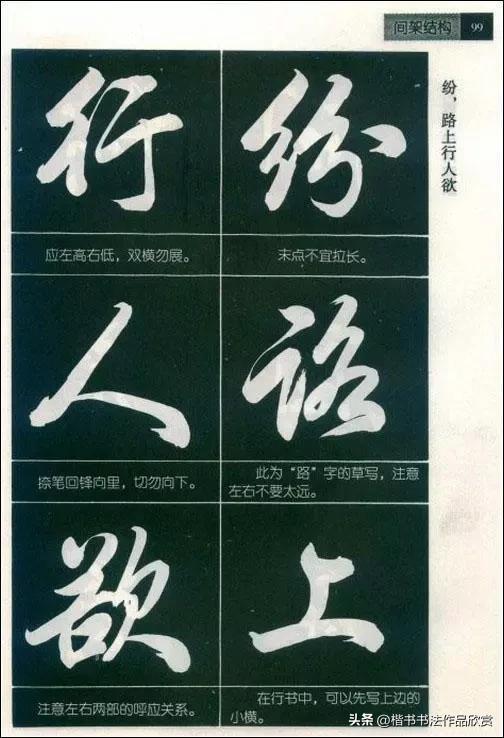 间架结构 99
纷，路上行人欲
纷
末点不宜拉长。
路
此为“路”字的草写，注意
左右不要太远。
上
在行书中，可以先写上边的
小横。
行
应左高右低，双横勿展。
人
捺笔回锋向里，切勿向下。
欲
注意左右两部的呼应关系。
头条 @楷书书法作品欣赏